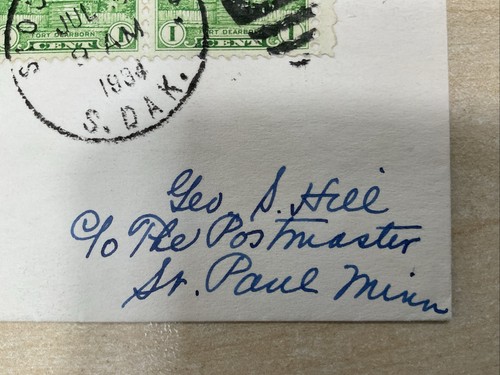 JUL
8 AM
1934
S. DAK.
FORT DEARBORN
1 CENT 1
FORT DEARBORN
1 CENT 1
Geo S. Hill
c/o The Postmaster
St. Paul Minn